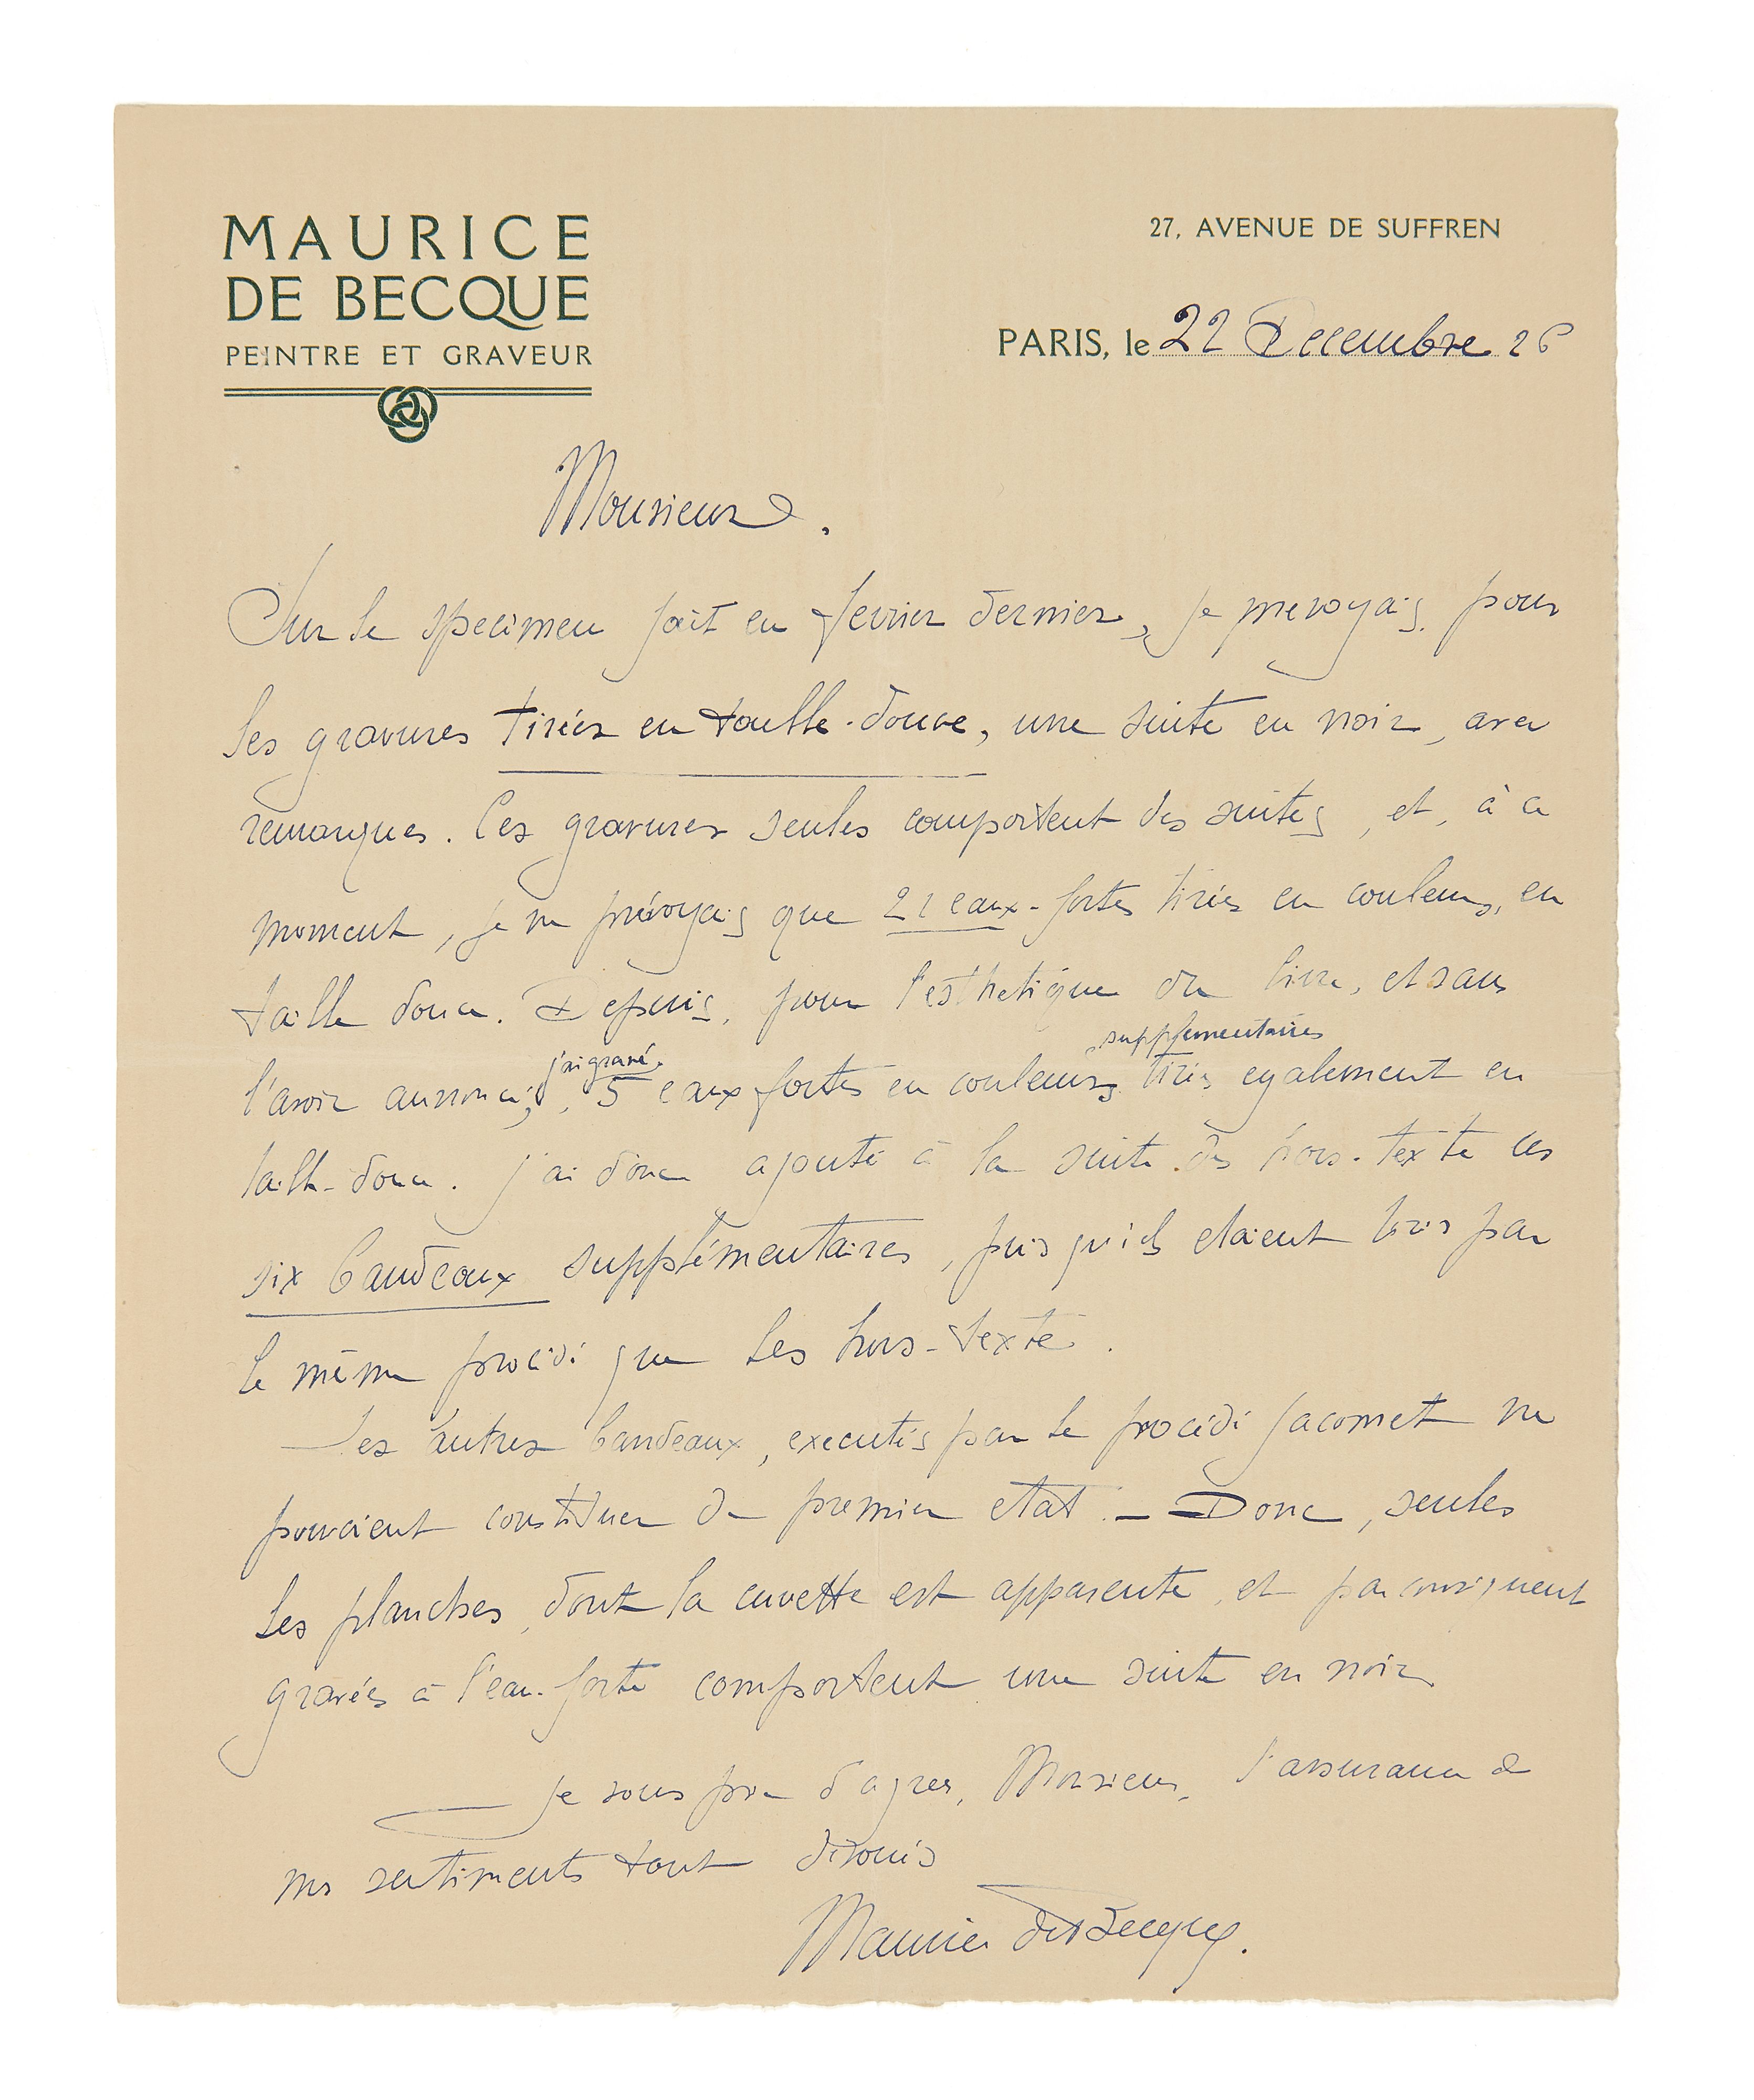 MAURICE
DE BECQUE
PEINTRE ET GRAVEUR
27, AVENUE DE SUFFREN
PARIS, le 22 Decembre 26
Monsieur,
Sur le specimen fait en fevrier dernier, je prevoyais pour
les gravures tirées en taille-douce, une suite en noir, avec
remarques. Ces gravures seules comportent des suites, et, à ce
moment, je ne prévoyais que 21 eaux-fortes tirées en couleurs, en
taille douce. Depuis, pour l'esthetique du livre, et sans
l'avoir annoncé, j'ai gravé 5 eaux fortes en couleurs supplementaires tirées egalement en
taille-douce. J'ai donc ajouté à la suite des hors-texte ces
six bandeaux supplémentaires, puisqu'ils etaient tirés par
le même procédé que les hors-texte.
Les autres bandeaux, executés par le procédé Jacomet ne
pouvaient constituer de premier etat. — Donc, seules
les planches, dont la cuvette est apparente, et par consequent
gravées à l'eau-forte comportent une suite en noir
Je vous prie d'agreer, Monsieur, l'assurance de
mes sentiments tout dévoués
Maurice de Becque.